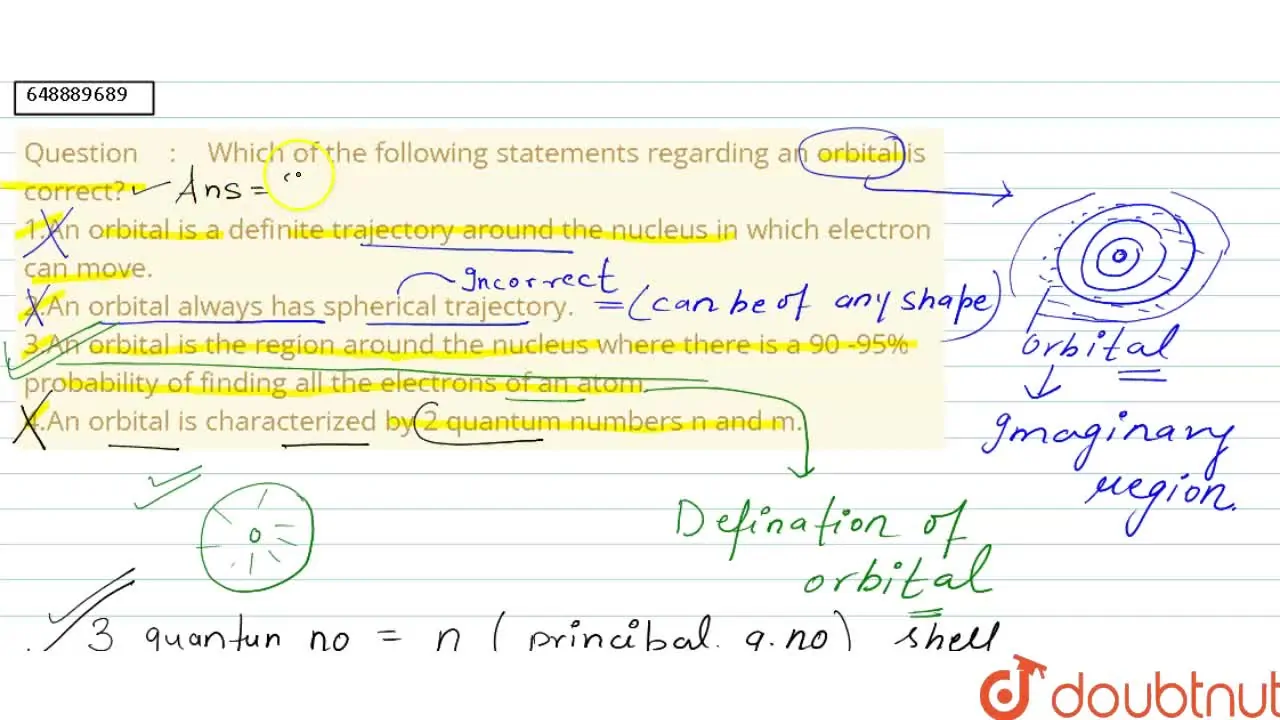 648889689
Question : Which of the following statements regarding an orbital is
correct? Ans =
1.An orbital is a definite trajectory around the nucleus in which electron
can move.
Incorrect
2.An orbital always has spherical trajectory. = (can be of any shape)
3.An orbital is the region around the nucleus where there is a 90 -95%
probability of finding all the electrons of an atom.
4.An orbital is characterized by 2 quantum numbers n and m.
orbital
Imaginary
region.
Defination of
orbital
3 quantun no = n ( principal q.no) shell
doubtnut